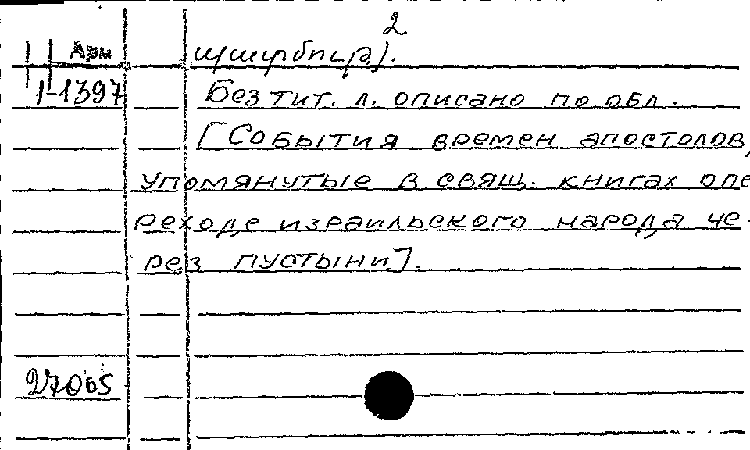 2
Арм պարբեր).
1-1397 Без тит. л. описано по обл.
[События времен апостолов,
упомянутые в свящ. книгах о пе
реходе израильского народа че-
рез пустыни].
27065